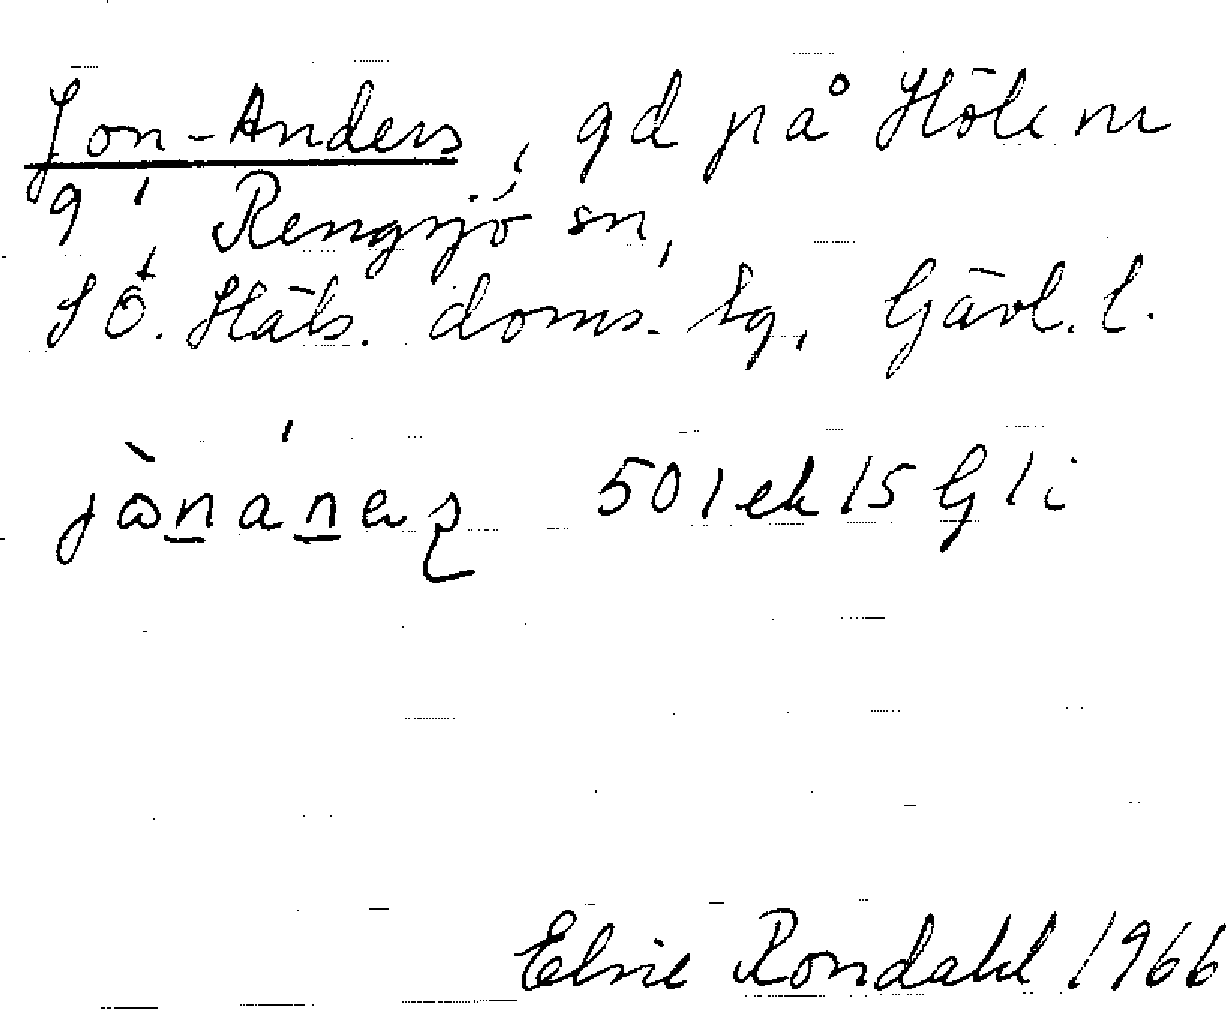 Jon-Anders, gd på Höle nr
9 i Rengsjö sn,
SÖ. Häls. doms. tg, Gävl. l.
501 ek 15 G 1 i
Elsie Rondahl 1966